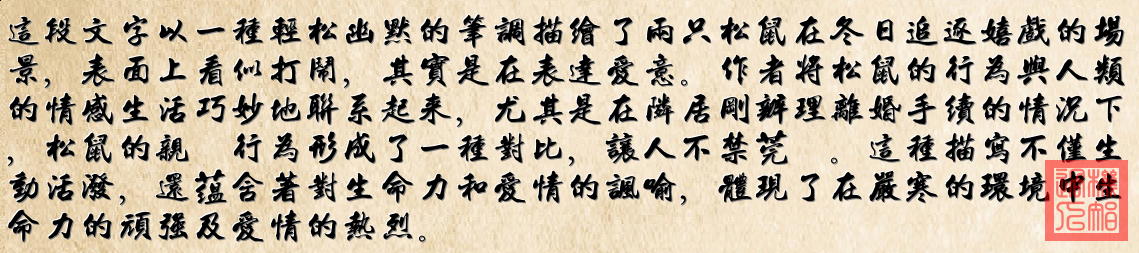 這段文字以一種輕松幽默的筆調描繪了兩只松鼠在冬日追逐嬉戲的場
景，表面上看似打鬧，其實是在表達愛意。作者將松鼠的行為與人類
的情感生活巧妙地聯系起來，尤其是在隣居剛辦理離婚手續的情況下
，松鼠的親　行為形成了一種對比，讓人不禁莞　。這種描寫不僅生
動活潑，還蘊含著對生命力和愛情的諷喻，體現了在嚴寒的環境中生
命力的頑強及愛情的熱烈。